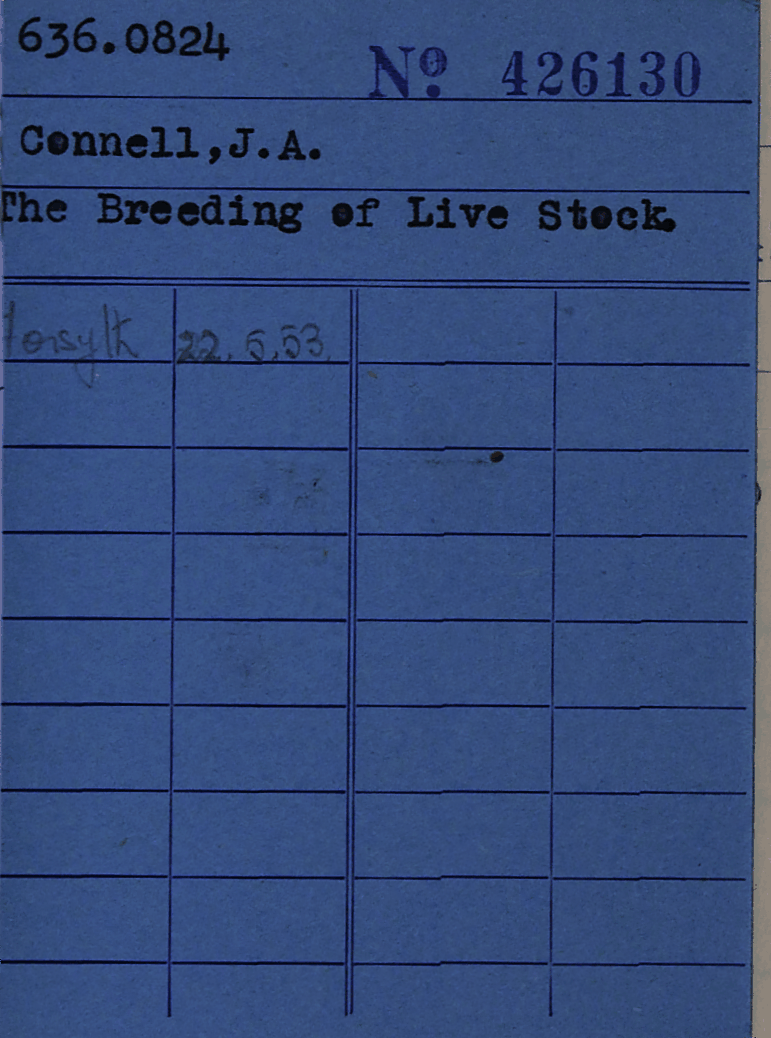 636.0824
Nº 426130
Connell,J.A.
The Breeding of Live Stock.
Forsyth 22.5.53